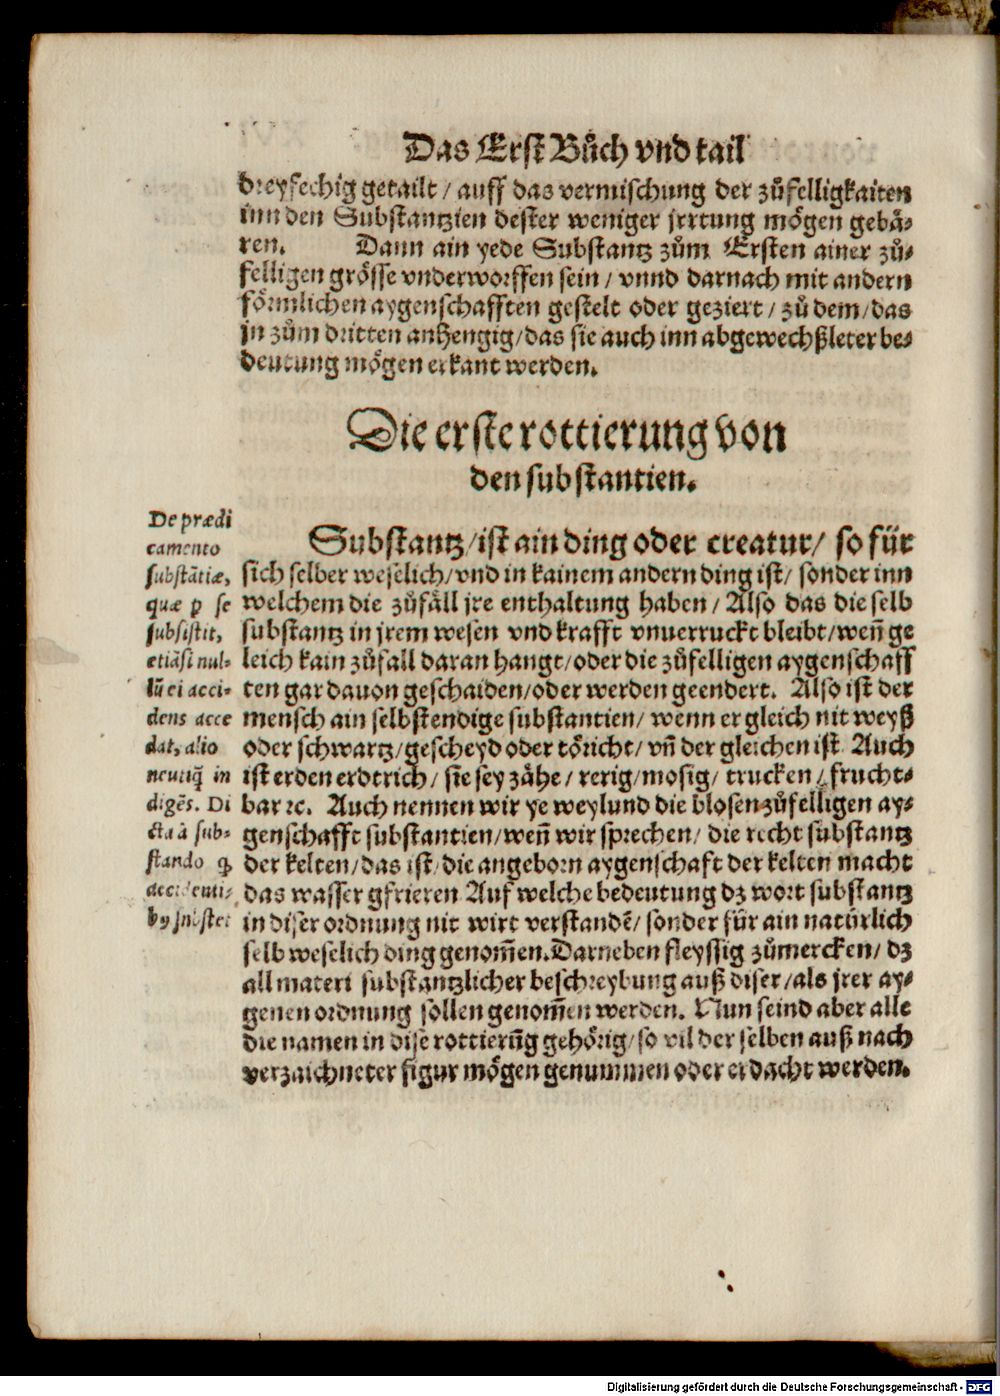 Das Erst Bůch vnd tail
dreyfechig getailt / auff das vermischung der zůfelligkaiten
inn den Substantzien dester weniger jrrtung mögen gebä⸗
ren. Dann ain yede Substantz zům Ersten ainer zů⸗
felligen grösse vnderworffen sein / vnnd darnach mit andern
förmlichen aygenschafften gestelt oder geziert / zů dem / das
jn zům dritten anhengig / das sie auch inn abgewechßleter be⸗
deutung mögen erkant werden.
Die erste rottierung von
den substantien.
Substantz / ist ain ding oder creatur / so für
sich selber weselich / vnd in kainem andern ding ist / sonder inn
welchem die zůfäll jre enthaltung haben / Also das die selb
substantz in jrem wesen vnd krafft vnuerruckt bleibt / weñ ge
leich kain zůfall daran hangt / oder die zůfelligen aygenschaff
ten gar dauon geschaiden / oder werden geendert. Also ist der
mensch ain selbstendige substantien / wenn er gleich nit weyß
oder schwartz / gescheyd oder töricht / vñ der gleichen ist Auch
ist erden erdtrich / sie sey zähe / rerig / mosig / trucken / frucht⸗
bar ꝛc. Auch nennen wir ye weylund die blosen zůfelligen ay⸗
genschafft substantien / weñ wir sprechen / die recht substantz
der kelten / das ist / die angeborn aygenschaft der kelten macht
das wasser gfrieren Auf welche bedeutung dz wort substantz
in diser ordnung nit wirt verstandẽ / sonder für ain natürlich
selb weselich ding genom̃en. Darneben fleyssig zůmercken / dz
all materi substantzlicher beschreybung auß diser / als jrer ay⸗
genen ordnung sollen genom̃en werden. Nun seind aber alle
die namen in dise rottierũg gehörig / so vil der selben auß nach
verzaichneter figur mögen genummen oder erdacht werden.
De prædi
camento
substãtiæ,
quæ p se
subsistit,
etiãsi nul⸗
lũ ei acci⸗
dens acce
dat, alio
neutiq̃ in
digẽs. Di
cta à sub⸗
stando ꝙ
accidenti⸗
bꝰ
Digitalisierung gefördert durch die Deutsche Forschungsgemeinschaft - DFG